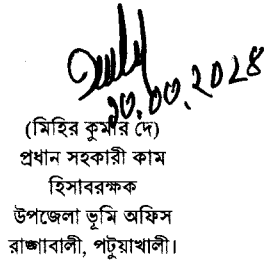 ১০.০৩.২০২৪
(মিহির কুমার দে)
প্রধান সহকারী কাম
হিসাবরক্ষক
উপজেলা ভূমি অফিস
রাঙ্গাবালী, পটুয়াখালী।